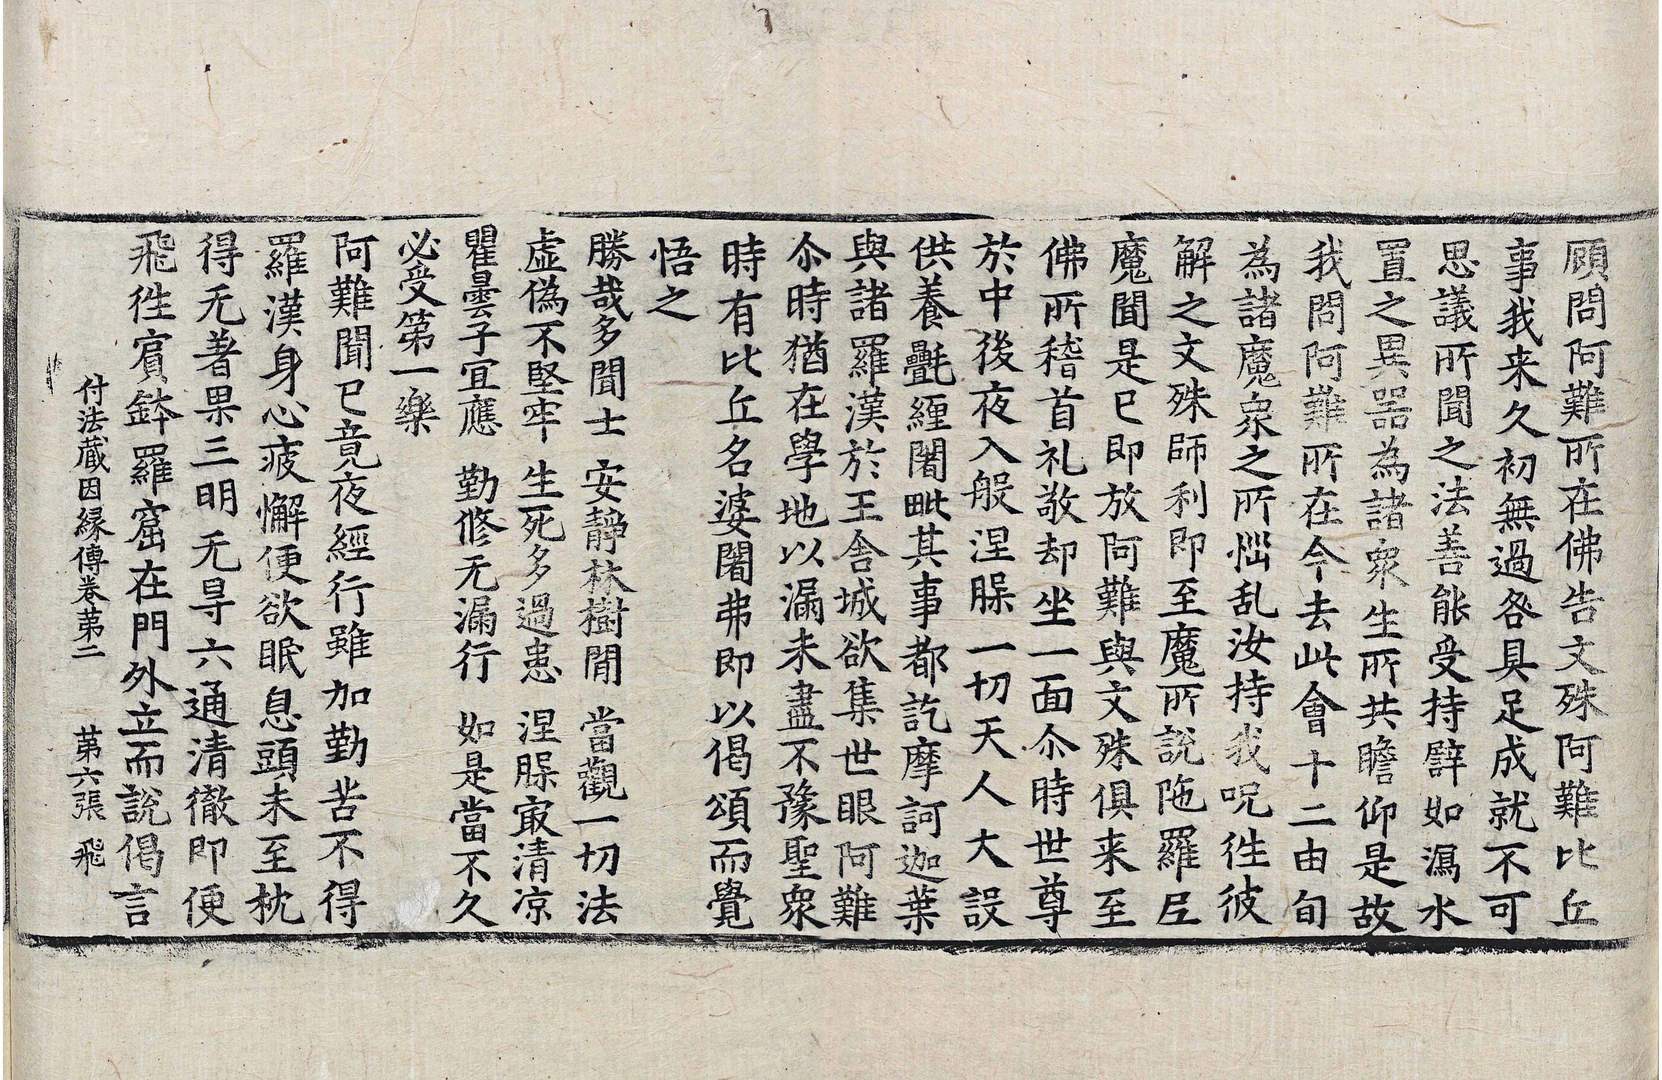 顧問阿難所在佛告文殊阿難比丘
事我来久初無過咎具足成就不可
思議所聞之法善能受持譬如瀉水
置之異器為諸衆生所共瞻仰是故
我問阿難所在今去此會十二由旬
為諸魔衆之所惱乱汝持我呪徃彼
解之文殊師利即至魔所說陁羅尼
魔聞是已即放阿難與文殊俱来至
佛所稽首礼敬却坐一面尒時世尊
於中後夜入般涅䏶一切天人大設
供養㲲纏闍毗其事都訖摩訶迦葉
與諸羅漢於王舍城欲集世眼阿難
尒時猶在學地以漏未盡不豫聖衆
時有比丘名婆闍弗即以偈頌而覺
悟之
勝哉多聞士 安靜林樹間 當觀一切法
虛偽不堅牢 生死多過患 涅䏶㝡清凉
瞿曇子宜應 勤修无漏行 如是當不久
必受第一樂
阿難聞已竟夜經行雖加勤苦不得
羅漢身心疲懈便欲眠息頭未至枕
得无著果三明无㝵六通清徹即便
飛徃賔鉢羅窟在門外立而說偈言
付法藏因縁傳卷苐二 第六張 飛